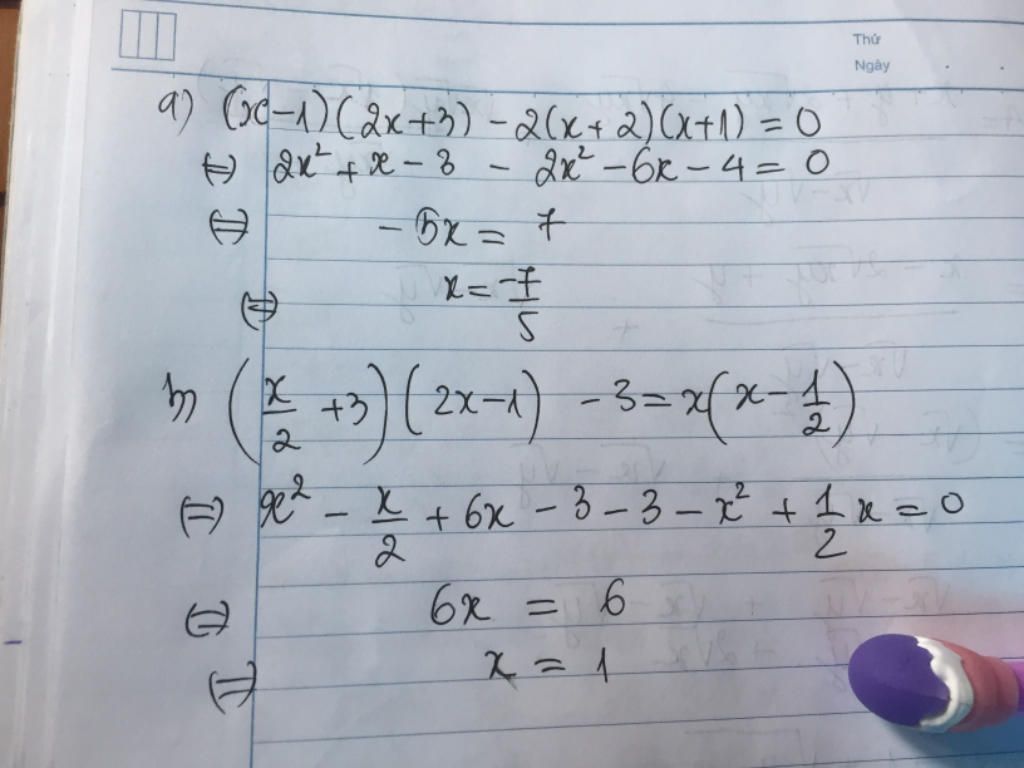 Thứ
Ngày
a) (x-1)(2x+3) - 2(x+2)(x+1) = 0
⇔ 2x² + x - 3 - 2x² - 6x - 4 = 0
⇔ - 5x = 7
⇔ x = -7/5
b) (x/2 + 3)(2x-1) - 3 = x(x - 1/2)
⇔ x² - x/2 + 6x - 3 - 3 - x² + 1/2 x = 0
⇔ 6x = 6
⇔ x = 1